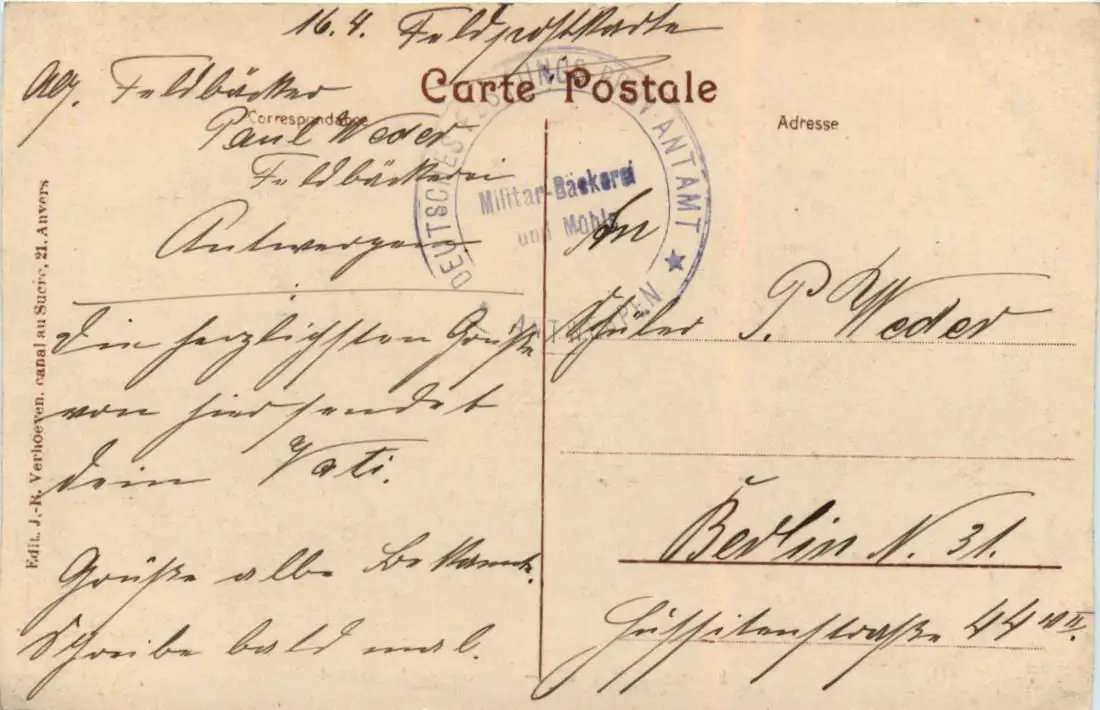 16.4. Feldpostkarte
Carte Postale
Abs. Feldbäcker
Correspondance
Paul Weder
Feldbäckerei
Antwergen
Die herzlichsten Grüße
von hier sendet
dein Vati.
Grüße alle Bekannt.
Schreibe bald mal.
Edit. J.-R. Verhoeven, canal au Sucre, 21, Anvers
DEUTSCHES FESTUNGS PROVIANTAMT
Militär-Bäckerei
und Mühle
ANTWERPEN
Adresse
An
Schüler P. Weder
Berlin N. 31.
Hussitenstraße 44 II.